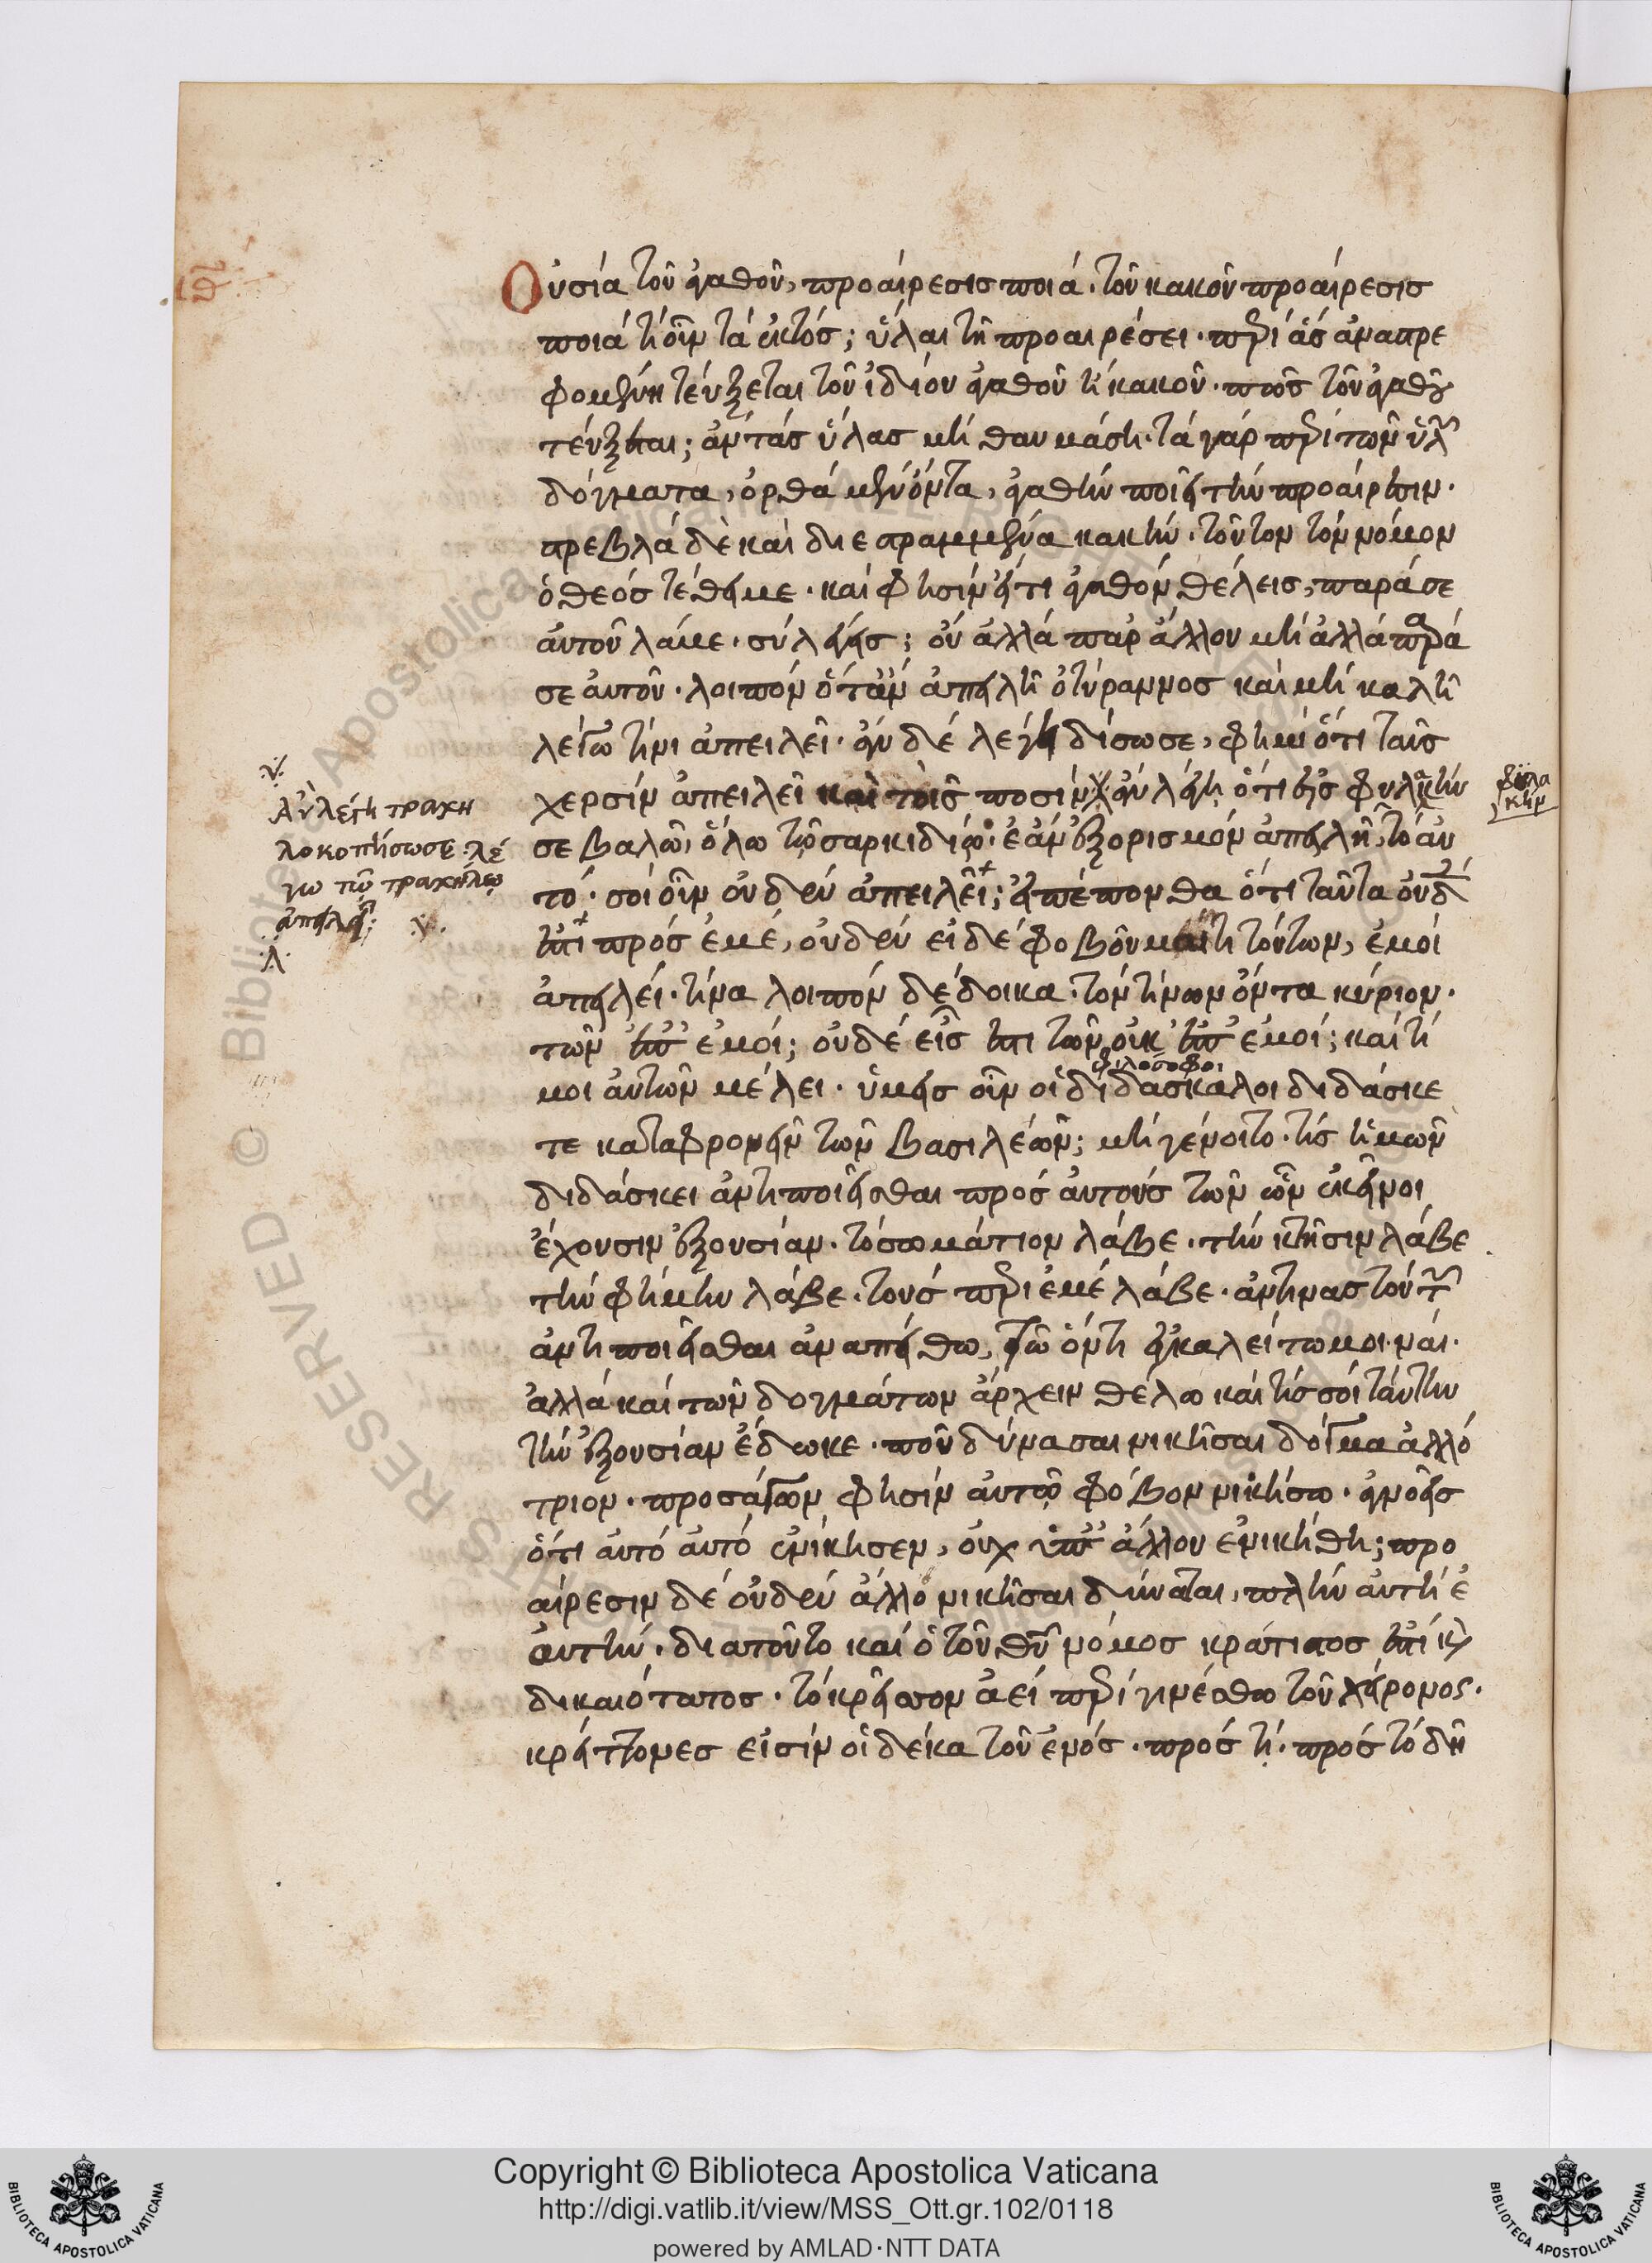 Οὐσία τοῦ ἀγαθοῦ, προαίρεσις ποιά· τοῦ κακοῦ προαίρεσις
ποιά τί οὖν τὰ ἐκτός; ὕλαι τῆ προαιρέσει· περὶ ἃς ἀναστρε
φομένη τεύξεται τοῦ ἰδίου ἀγαθοῦ ἢ κακοῦ· πῶς τοῦ ἀγαθοῦ
τεύξεται; ἂν τὰς ὕλας μὴ θαυμάση· τὰ γὰρ περὶ τῶν ὑλῶν
δόγματα, ὀρθὰ μὲν ὄντα, ἀγαθὴν ποιεῖ τὴν προαίρεσιν·
στρεβλὰ δὲ καὶ διεστραμμένα κακήν· τοῦτον τὸν νόμον
ὁ θεὸς τέθεικε· καὶ φησὶν εἴ τι ἀγαθὸν θέλεις, παρὰ σε
αυτοῦ λάβε· σὺ λέγεις; οὔ ἀλλὰ παρ ἄλλου μὴ ἀλλὰ παρὰ
σεαυτοῦ· λοιπὸν ὅταν ἀπειλῆ ὁ τύραννος καὶ μὴ καλῆ
λέγω τίνι ἀπειλεῖ· ἂν δὲ λέγη δήσω σε, φημὶ ὅτι ταῖς
χερσὶν ἀπειλεῖ καὶ τοῖς ποσίν· ἂν λέγη ὅτι εἰς φυλακήν
σε βαλῶ, ὅλω τῶ σαρκιδίω· ἐὰν ἐξορισμὸν ἀπειλῆ, τὸ αὐ
τό· σοὶ οὖν οὐδὲν ἀπειλεῖ; εἰ πέπονθα ὅτι ταῦτα οὐδέν
ἐστι πρὸς ἐμέ, οὐδέν εἰ δὲ φοβοῦμαί τι τούτων, ἐμοί
ἀπειλεῖ· τίνα λοιπὸν δέδοικα· τὸν τίνων ὄντα κύριον·
τῶν ἐπ ἐμοί; οὐδὲ εἷς ἐστι τῶν οὐκ ἐπ ἐμοί; καὶ τί
φιλόσοφοι
μοι αὐτῶν μέλει· ὑμεῖς οὖν οἱ διδάσκαλοι διδάσκε
τε καταφρονεῖν τῶν βασιλέων; μὴ γένοιτο· τίς ἡμῶν
διδάσκει ἀντιποιεῖσθαι πρὸς αὐτοὺς τῶν ὧν ἐκεῖνοι
ἔχουσιν ἐξουσίαν· τὸ σωμάτιον λάβε· τὴν κτῆσιν λάβε
τὴν φήμην λάβε· τοὺς περὶ ἐμὲ λάβε· ἄν τινας τούτων
ἀντιποιεῖσθαι ἀναπείθω, τῶ ὄντι ἐγκαλείτω μοι· ναί·
ἀλλὰ καὶ τῶν δογμάτων ἄρχειν θέλω καὶ τίς σοὶ ταύτην
τὴν ἐξουσίαν ἔδωκε· ποῦ δύνασαι νικῆσαι δόγμα ἀλλό
τριον· προσάγων φησὶν αὐτῶ φόβον νικήσω· ἀγνοεῖς
ὅτι αὐτὸ αὑτὸ ἐνίκησεν, οὐχ ὑπ ἄλλου ἐνικήθη; προ
αίρεσιν δὲ οὐδὲν ἄλλο νικῆσαι δύναται, πλὴν αὐτὴ ἑ
αυτήν· διατοῦτο καὶ ὁ τοῦ θυ νόμος κράτιστος ἐστι καὶ
δικαιότατος· τὸ κρεῖσσον ἀεὶ περιγινέσθω τοῦ χείρονος·
κρείττονες εἰσὶν οἱ δέκα τοῦ ἑνός· πρὸς τί· πρὸς τὸ δῆ
Ἂν λέγη τραχη
λοκοπήσω σε λέ
γω τῶ τραχήλω
ἀπειλεῖ:
φυλα
κήν